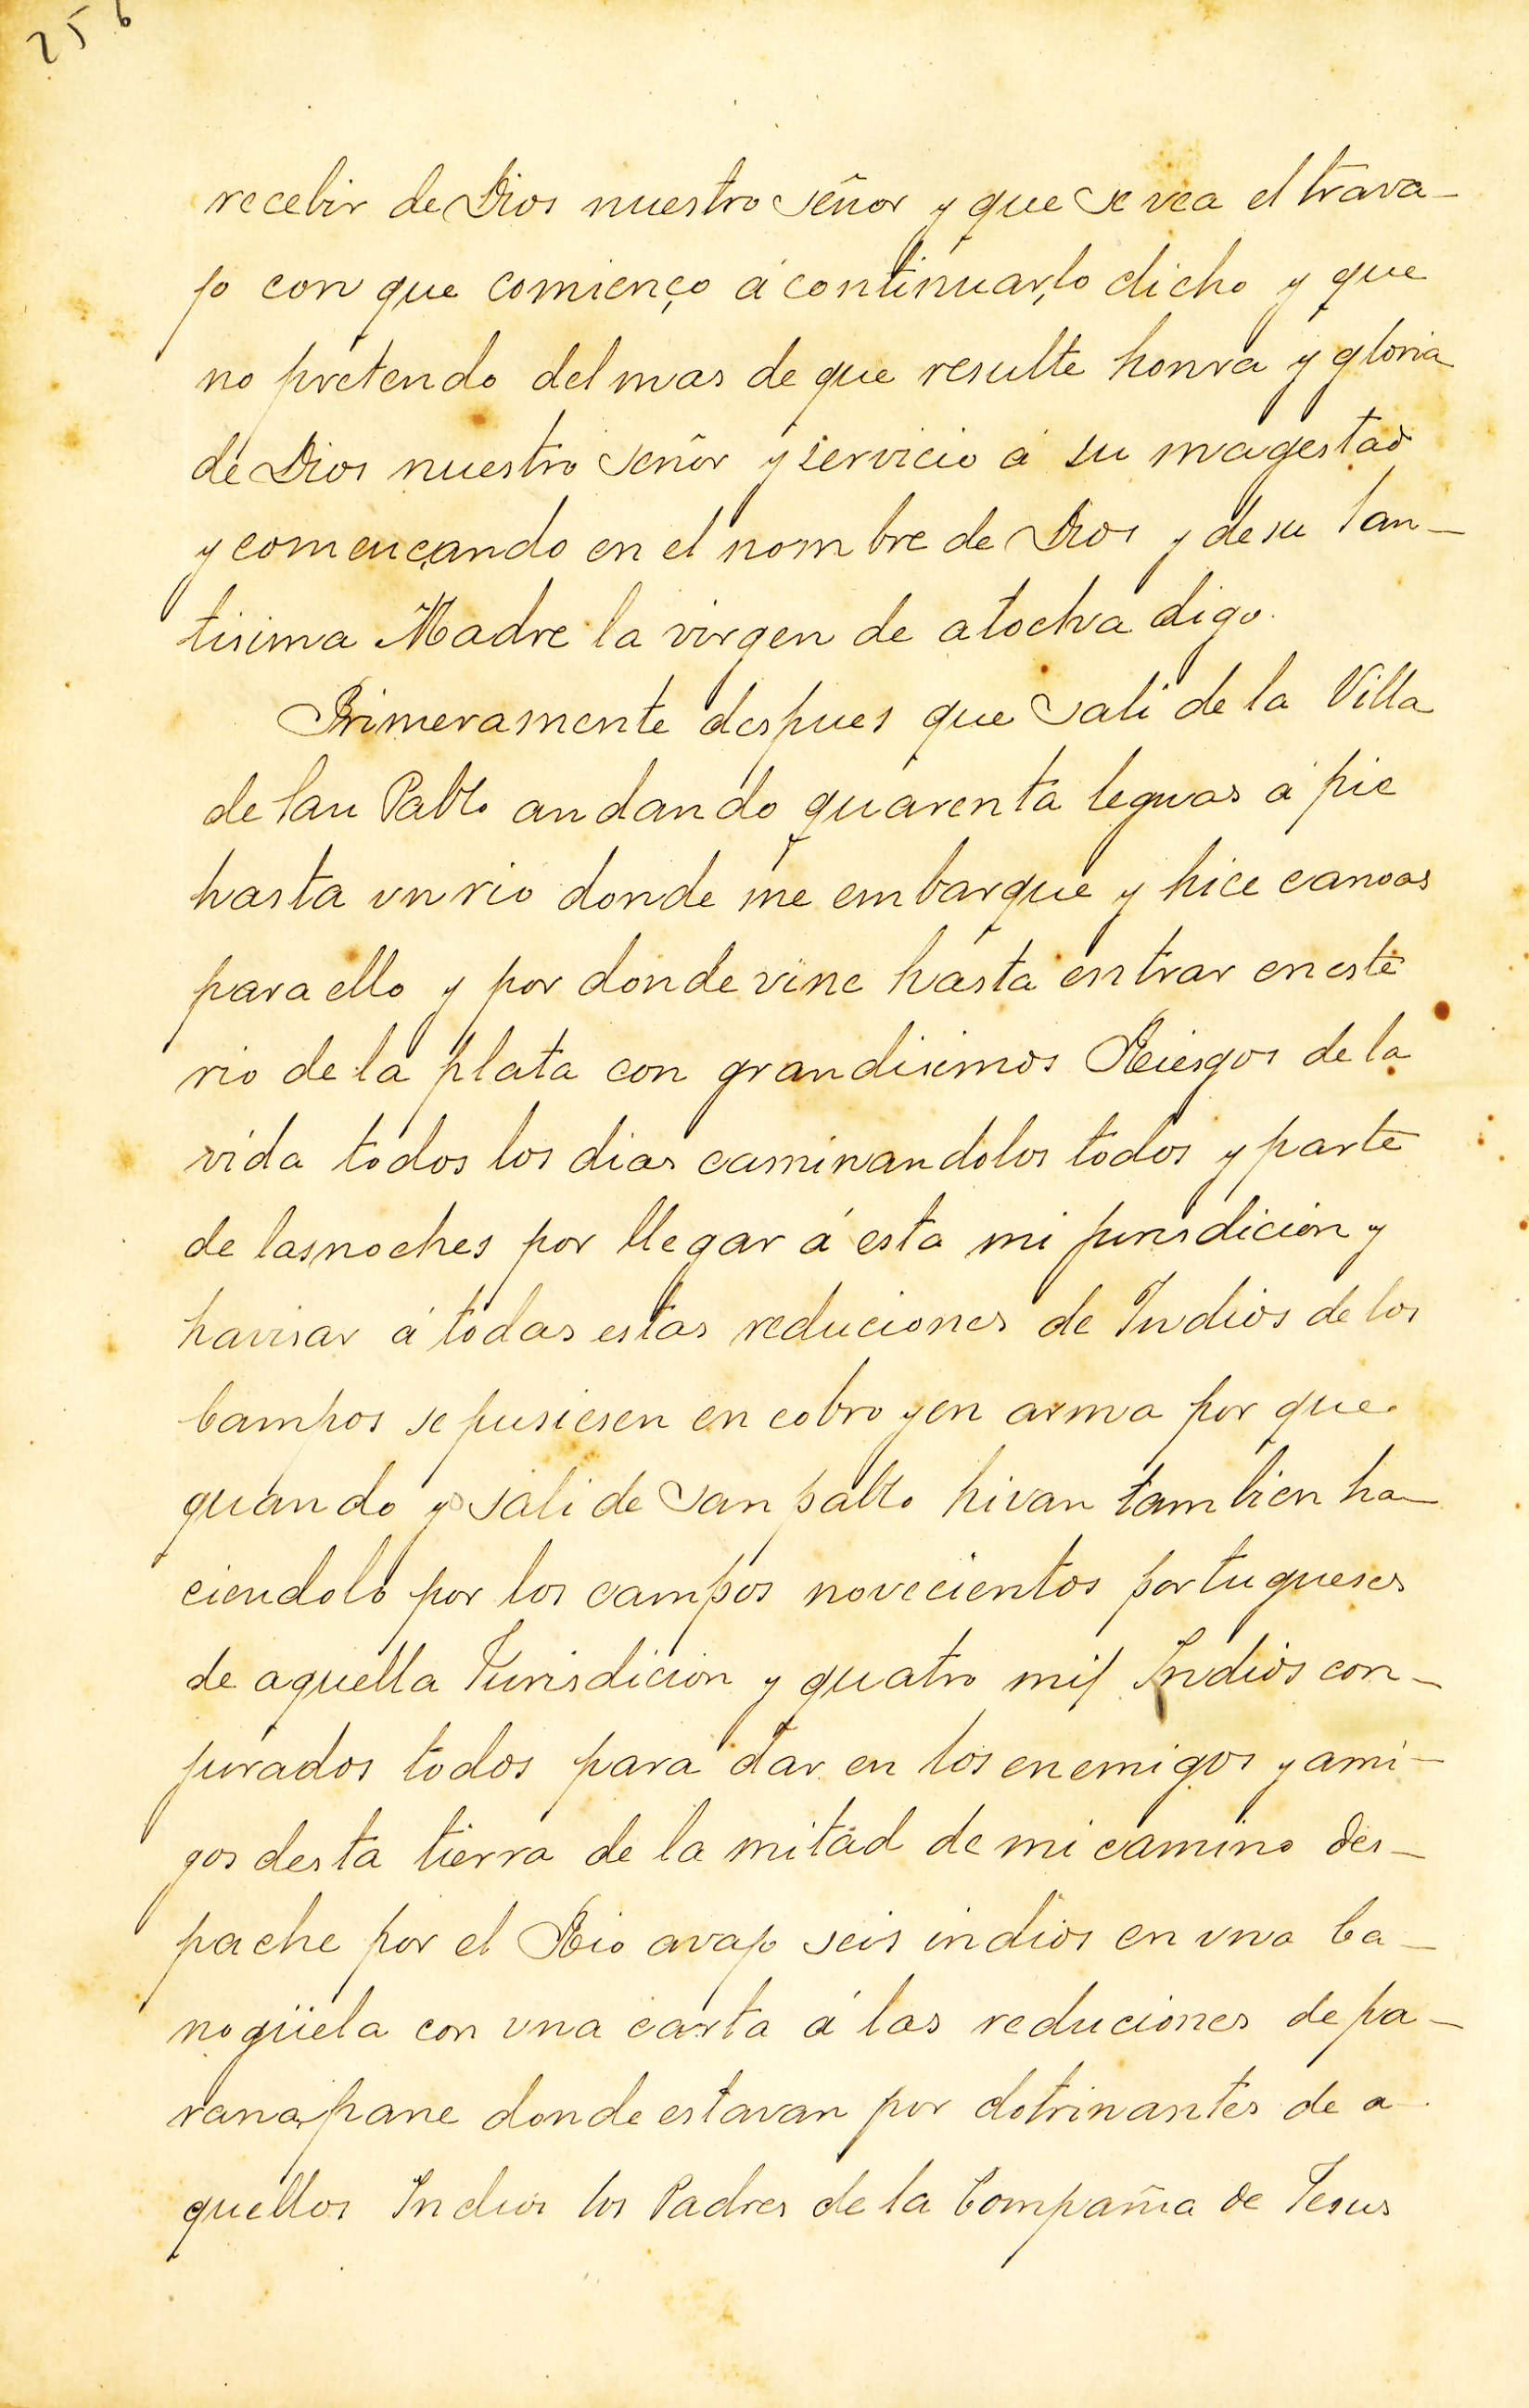 256
recebir de Dios nuestro señor y que se vea el trava-
jo con que comienço á continuar lo dicho y que
no pretendo del mas de que resulte honra y gloria
de Dios nuestro señor y servicio á su magestad
y comencando en el nombre de Dios y de su San-
tisima Madre la virgen de atocha digo.
Primeramente despues que sali de la Villa
de San Pablo andando quarenta leguas á pie
hasta vn rio donde me embarque y hice canoas
para ello y por donde vine hasta entrar en este
rio de la plata con grandisimos Riesgos de la
vida todos los dias caminandolos todos y parte
de las noches por llegar á esta mi jurisdicion y
havisar á todas estas reduciones de Indios de los
Campos se pusiesen en cobro y en arma por que
quando yo sali de san pablo hivan tambien ha-
ciendolo por los campos novecientos portugueses
de aquella Jurisdicion y quatro mil Indios con-
jurados todos para dar en los enemigos y ami-
gos desta tierra de la mitad de mi camino des-
pache por el Rio avajo seis indios en vna Ca-
nogüela con vna carta á las reduciones de pa-
ranapane donde estavan por dotrinantes de a-
quellos Indios los Padres de la Compañia de Jesus